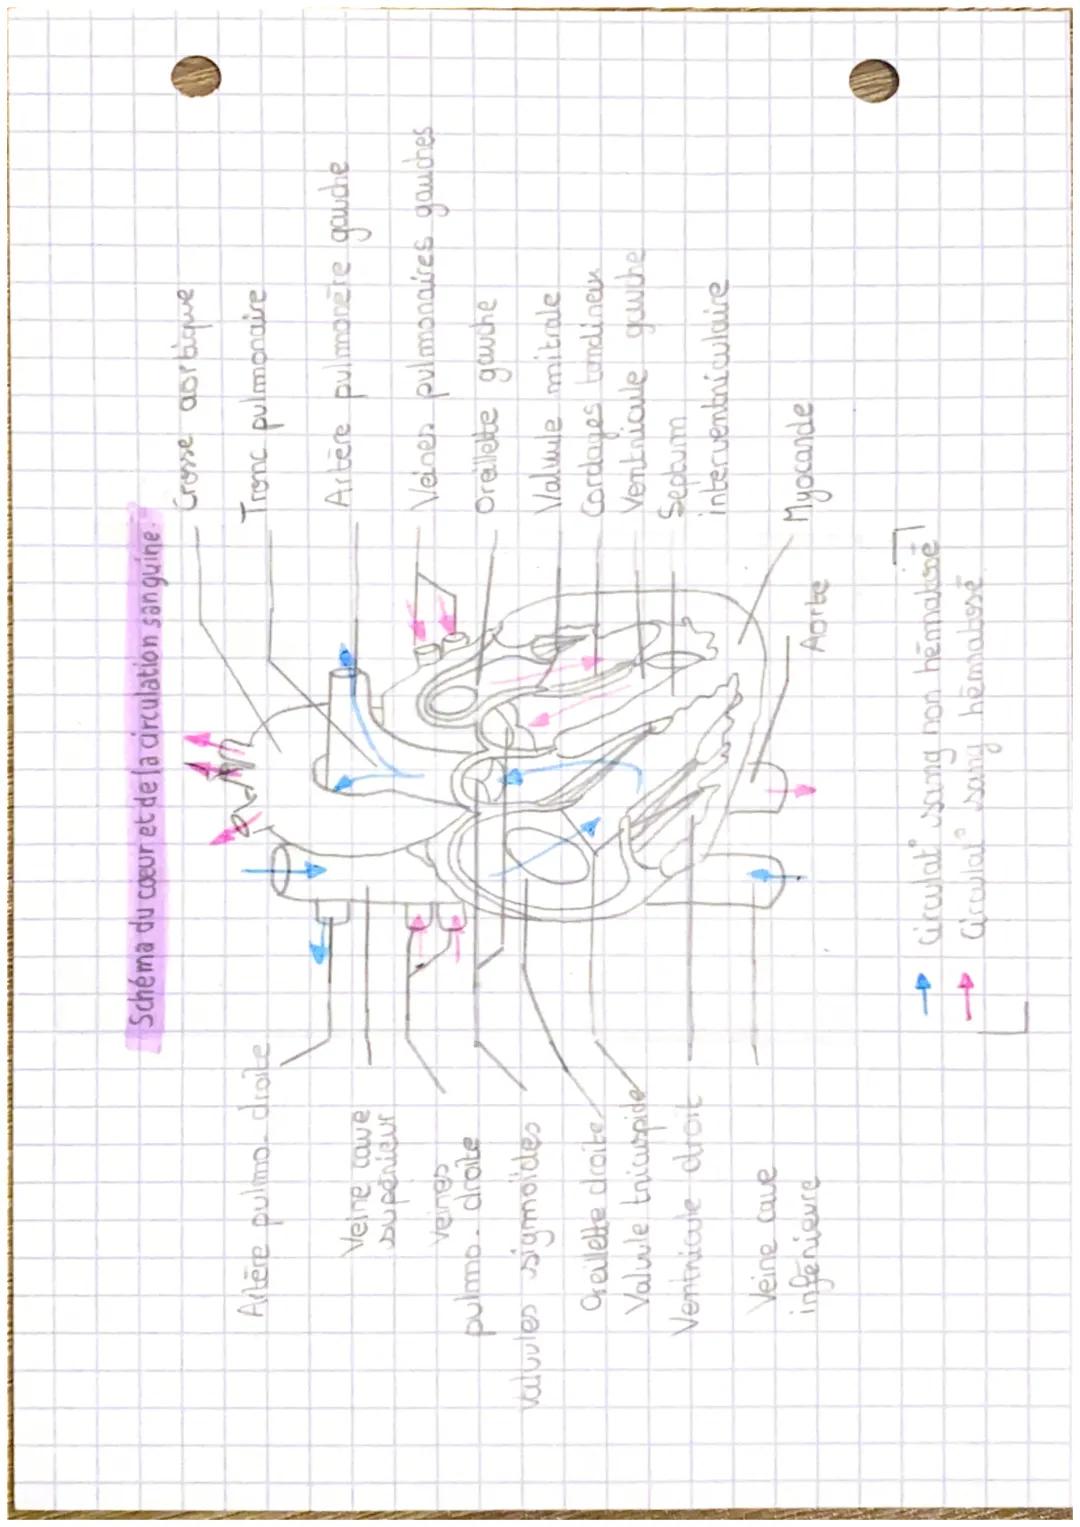 Schéma du cœur et de la circulation sanguine.
Crosse aortique
Tronc pulmonaire
Artère pulmonère gauche
Veines pulmonaires gauches
Oreillette gauche
Valvule mitrale
Cordages tendineux
Ventricule gauche
Septum
interventriculaire
Myocarde
Aorte
Artère pulmo. droite
Veine cave
supérieur
Veines
pulmo. droite
Valvules sigmoïdes
Oreillette droite
Valvule tricuspide
Ventricule droit
Veine cave
inférieure
circulat° sang non hématosé
circulat° sang hématosé